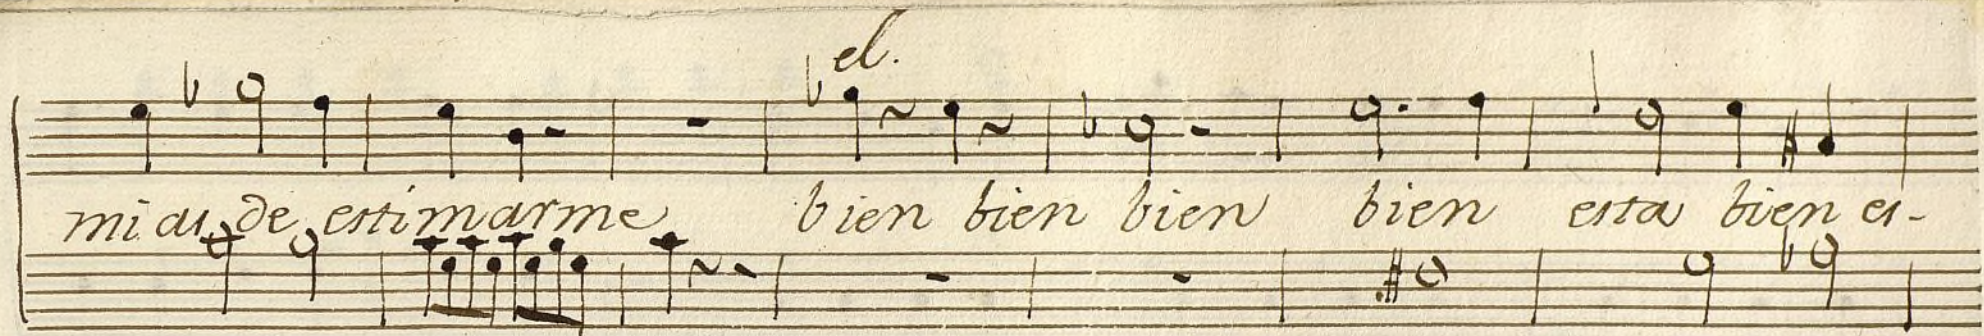 el.
mi as de estimarme bien bien bien bien esta bien es-